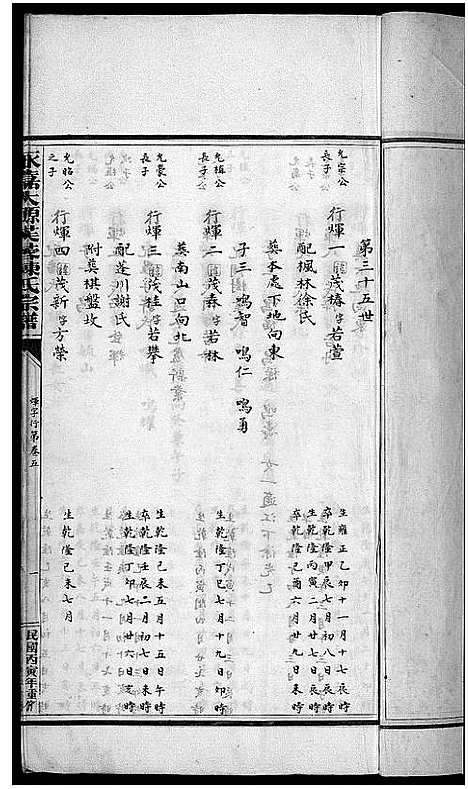 第三十五世
允宗公
長子
行煇一 諱茂椿字若萱
生雍正乙卯十一月十七辰時
卒乾隆甲辰七月初八日辰時
配楓林徐氏
生乾隆丙寅二月廿七日辰時
卒乾隆己酉六月廿九日未時
塟本處下地向東
子三 鳴智 鳴仁 鳴勇
允梅公
長子
行煇二 諱茂森字若林
生乾隆丁巳七月十九日卯時
塟南山口向北
允蒙公
長子
行煇三 諱茂桂字若攀
生乾隆己未五月十五日午時
卒乾隆壬辰二月初七日未時
配蓬川謝氏
生乾隆丁卯七月廿六日亥時
附塟棋盤坟
允昭公
之子
行煇四 諱茂新字方榮
生乾隆己未七月
陳氏宗譜
煇字行第卷五
一
民國丙寅年重修